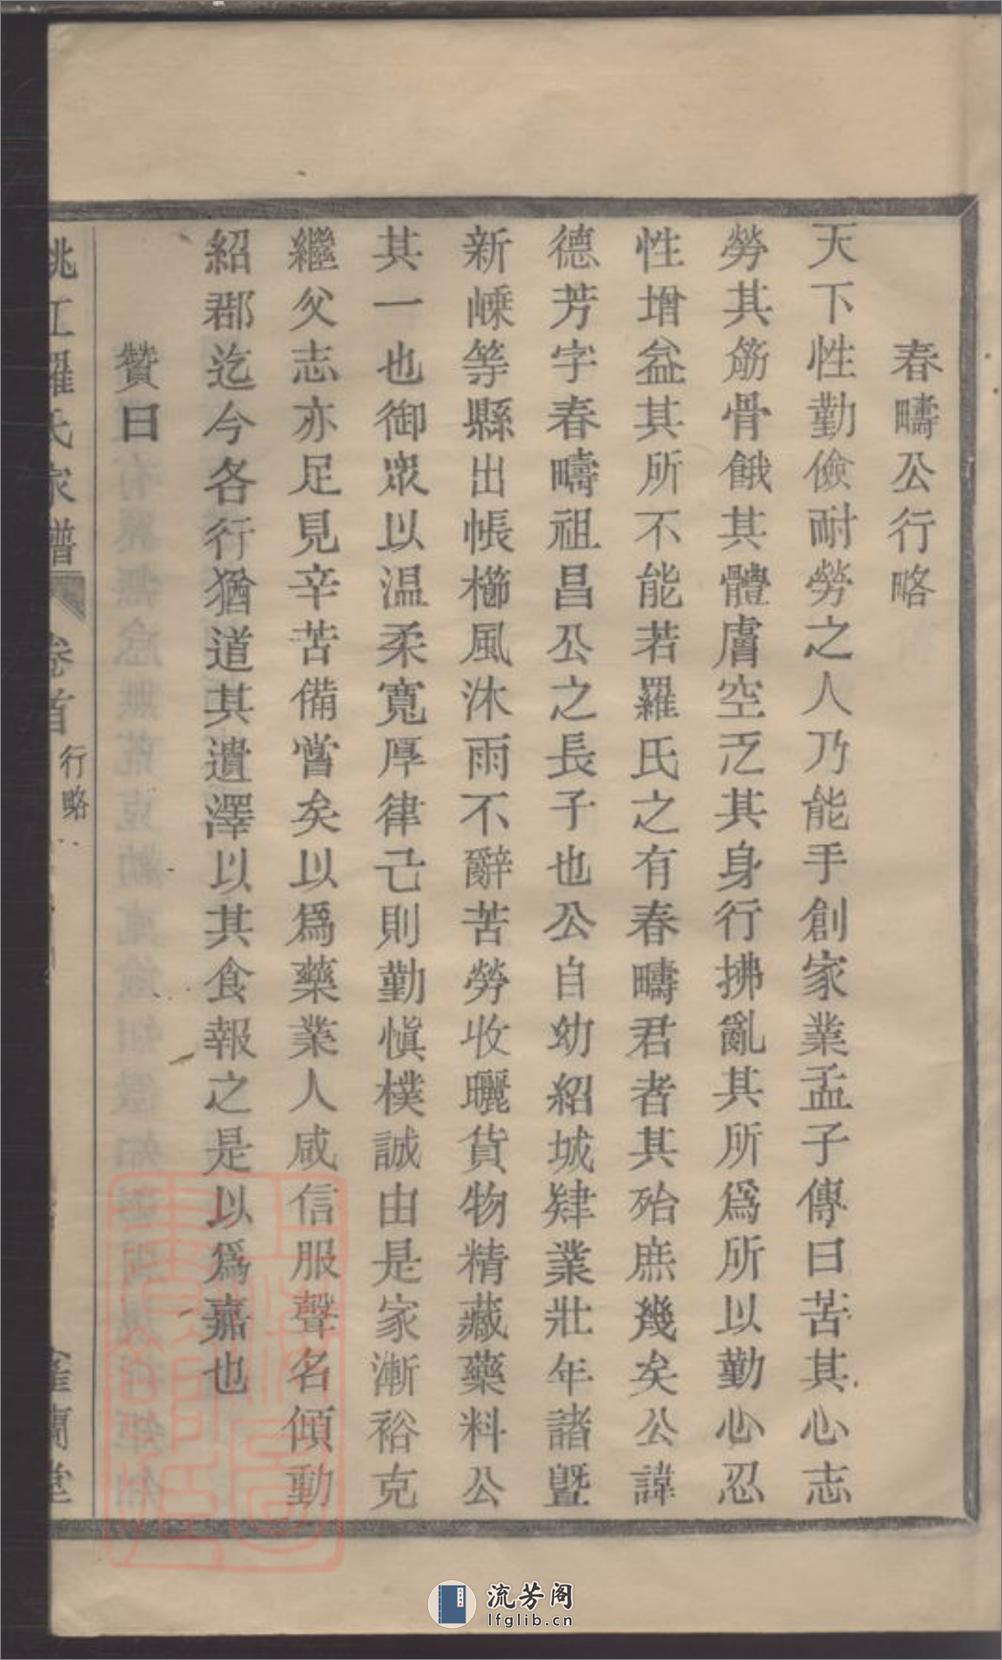 春疇公行略
天下性勤儉耐勞之人乃能手創家業孟子傳曰苦其心志
勞其筋骨餓其體膚空乏其身行拂亂其所爲所以勤心忍
性增益其所不能若羅氏之有春疇君者其殆庶幾矣公諱
德芳字春疇祖昌公之長子也公自幼紹城肄業壯年諸暨
新嵊等縣出帳櫛風沐雨不辭苦勞收曬貨物精藏藥料公
其一也御衆以温柔寬厚律己則勤愼樸誠由是家漸裕克
繼父志亦足見辛苦備嘗矣以爲藥業人咸信服聲名傾動
紹郡迄今各行猶道其遺澤以其食報之是以爲嘉也
贊曰
姚江羅氏家譜
卷首
行略
堂
流芳阁
lfglib.cn